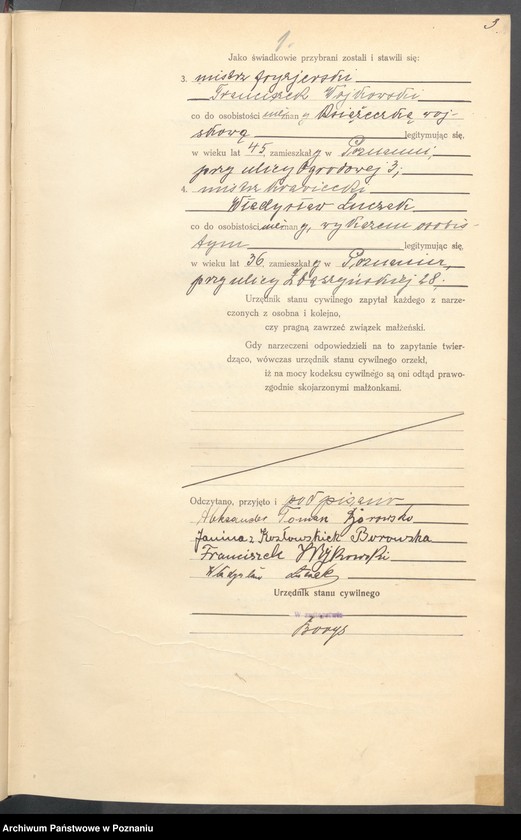 3.
1.
Jako świadkowie przybrani zostali i stawili się:
3. mistrz fryzjerski
Franciszek Wójkowski
co do osobistości nieznany Książeczką woj-
skową legitymując się,
w wieku lat 45, zamieszkały w Poznaniu,
przy ulicy Ogrodowej 3;
4. mistrz krawiecki
Władysław Łuczak
co do osobistości nieznany, wykazem osobis-
tym legitymując się,
w wieku lat 36, zamieszkały w Poznaniu,
przy ulicy Zbąszyńskiej 28.
Urzędnik stanu cywilnego zapytał każdego z narze-
czonych z osobna i kolejno,
czy pragną zawrzeć związek małżeński.
Gdy narzeczeni odpowiedzieli na to zapytanie twier-
dząco, wówczas urzędnik stanu cywilnego orzekł,
iż na mocy kodeksu cywilnego są oni odtąd prawo-
zgodnie skojarzonymi małżonkami.
Odczytano, przyjęto i podpisano
Aleksander Roman Borowski
Janina z Kozłowskich Borowska
Franciszek Wójkowski
Władysław Łuczak
Urzędnik stanu cywilnego
W zastępstwie
Borys
Archiwum Państwowe w Poznaniu